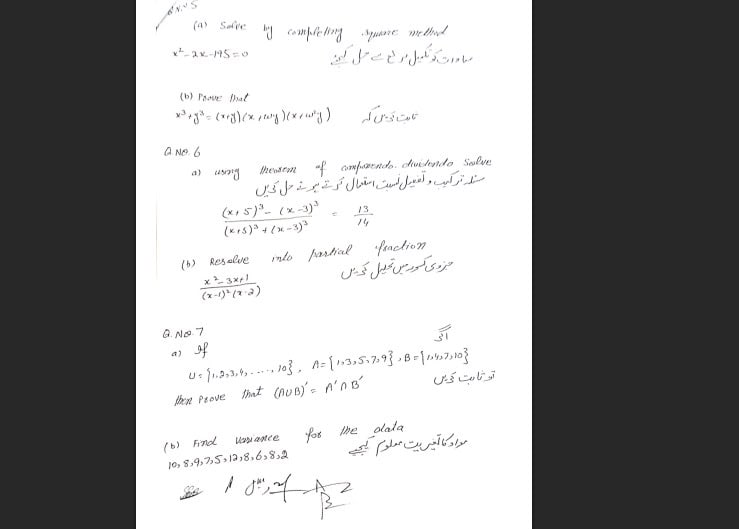 Q.No 5
(a) Solve by completing square method
x²-2x-195=0 مساوات کو تکمیل مربع سے حل کیجئے
(b) Prove that
x³+y³=(x+y)(x+wy)(x+w²y) ثابت کریں کہ
Q No. 6
a) using theorem of componendo dividendo solve
مسئلہ ترکیب و تفصیل نسبت استعمال کرتے ہوئے حل کریں
(x+5)³-(x-3)³ / (x+5)³+(x-3)³ = 13/14
(b) Resolve into partial fraction
x²-3x+1 / (x-1)²(x-2) جزوی کسور میں تحلیل کریں
Q.No.7
a) If اگر
U={1,2,3,4,....,10}, A={1,3,5,7,9}, B={1,4,7,10}
then Prove that (A∪B)'=A'∩B' تو ثابت کریں
(b) Find variance for the data
10,8,9,7,5,12,8,6,8,2 مواد کا تغیریت معلوم کیجیے